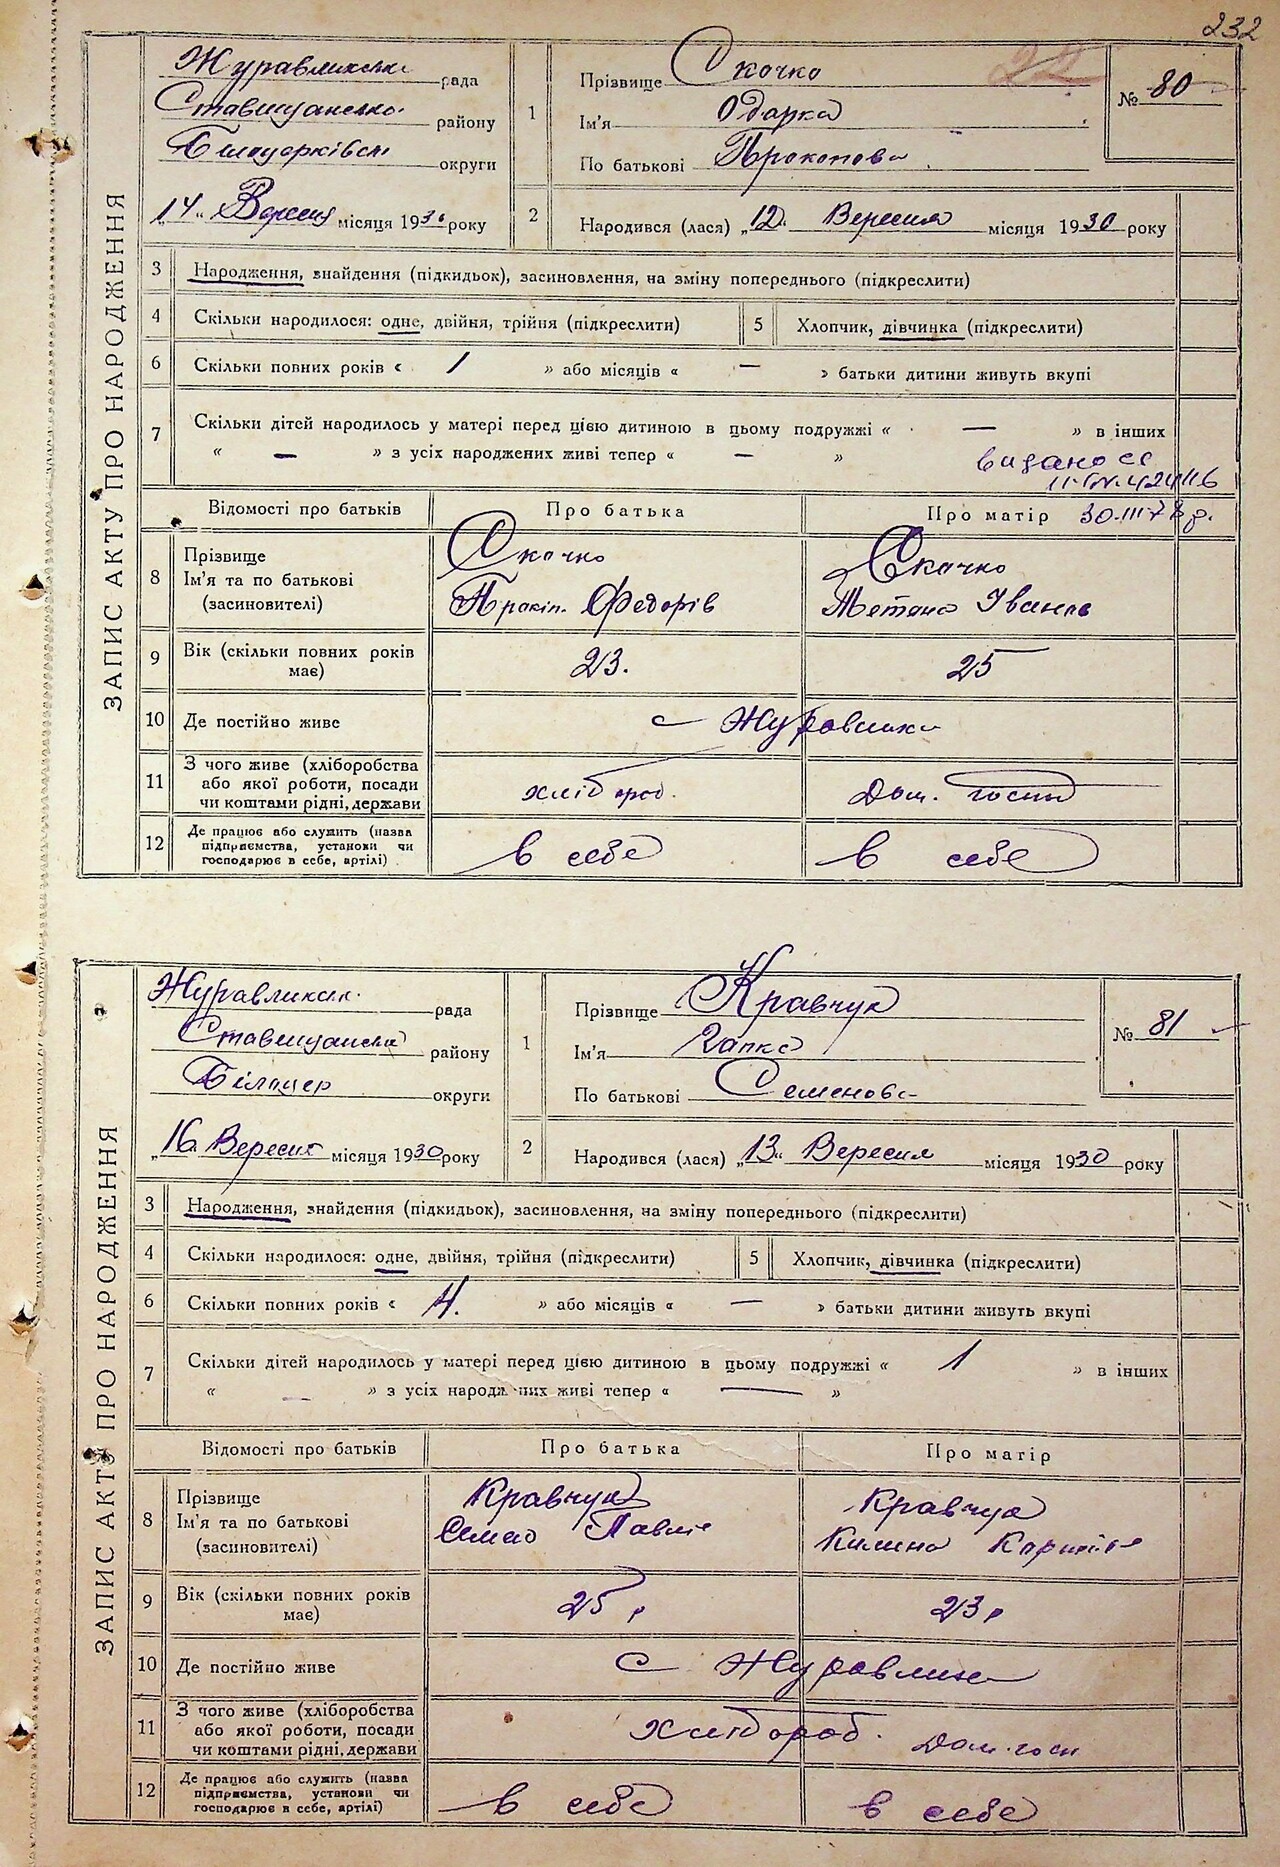 232
ЗАПИС АКТУ ПРО НАРОДЖЕННЯ
Журавлихська рада
Ставищансько району
Білоцерківсь округи
„14“ Вересня місяця 1930 року
1
Прізвище Скочко
Ім'я Одарка
По батькові Прокопова
№ 80
2 Народився (лася) „12“ Вересня місяця 1930 року
3 Народження, знайдення (підкидьок), засиновлення, на зміну попереднього (підкреслити)
4 Скільки народилося: одне, двійня, трійня (підкреслити) 5 Хлопчик, дівчинка (підкреслити)
6 Скільки повних років « 1 » або місяців « — » батьки дитини живуть вкупі
7 Скільки дітей народилось у матері перед цією дитиною в цьому подружжі « — » в інших
« — » з усіх народжених живі тепер « — »
видано
30.III 78 р.
Відомості про батьків Про батька Про матір
8 Прізвище Ім'я та по батькові (засиновителі)
Скочко Скочко
Прокіп. Федорів Тетяна Іванів
9 Вік (скільки повних років має) 23. 25
10 Де постійно живе с Журавлиха
11 З чого живе (хліборобства або якої роботи, посади чи коштами рідні, держави хлібороб. Дом. госпо
12 Де працює або служить (назва підприємства, установи чи господарює в себе, артілі) в себе в себе
ЗАПИС АКТУ ПРО НАРОДЖЕННЯ
Журавлихсь. рада
Ставищанська району
Білоцер округи
„16 Вересня місяця 1930 року
1
Прізвище Кравчук
Ім'я Гапка
По батькові Семенова
№ 81
2 Народився (лася) „13“ Вересня місяця 1930 року
3 Народження, знайдення (підкидьок), засиновлення, на зміну попереднього (підкреслити)
4 Скільки народилося: одне, двійня, трійня (підкреслити) 5 Хлопчик, дівчинка (підкреслити)
6 Скільки повних років « 4. » або місяців « — » батьки дитини живуть вкупі
7 Скільки дітей народилось у матері перед цією дитиною в цьому подружжі « 1 » в інших
« — » з усіх народжених живі тепер « — »
Відомості про батьків Про батька Про матір
8 Прізвище Ім'я та по батькові (засиновителі)
Кравчук Кравчук
Павлів Килина
9 Вік (скільки повних років має) 25 р 23 р
10 Де постійно живе с Журавлиха
11 З чого живе (хліборобства або якої роботи, посади чи коштами рідні, держави хлібороб. Дом. госп
12 Де працює або служить (назва підприємства, установи чи господарює в себе, артілі) в себе в себе